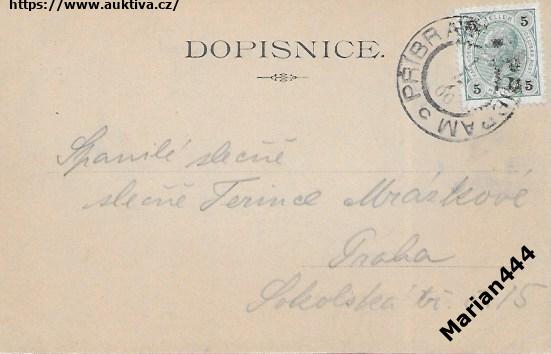 https://www.auktiva.cz/
DOPISNICE.
5 5
5 5
PŘÍBRAM
Spanilé slečně
slečně Terince Mráskové
Praha
Sokolská tř. 15
Marian444